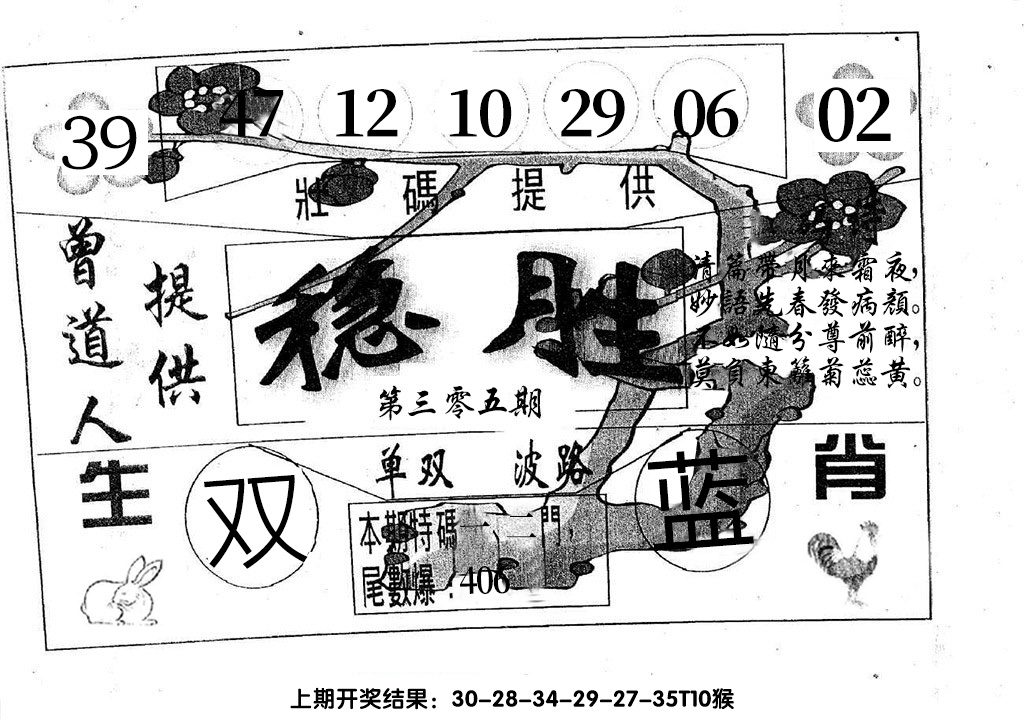 39 47 12 10 29 06 02
壯碼提供
特
曾道人
提供
稳胜
第三零五期
清篇帶月來霜夜，
妙語先春發病顔。
不如隨分尊前醉，
莫負東籬菊蕊黄。
单双 波路
生肖
双
蓝
本期特碼一、二門，
尾數爆：406
上期开奖结果：30-28-34-29-27-35T10猴